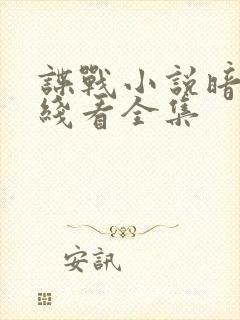 諜戰小説暗
綫看全集
安訊